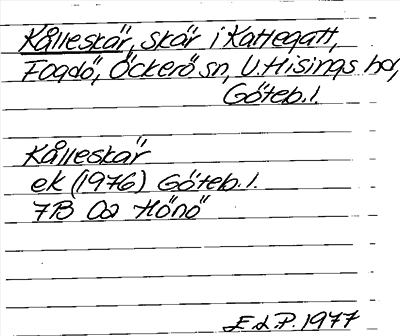 Kålleskär, skär i Kattegatt,
Fogdö, Öckerö sn, V. Hisings hd,
Göteb. l.
Kålleskär
ek (1976) Göteb. l.
7B 0a Hönö
E.d.P. 1977